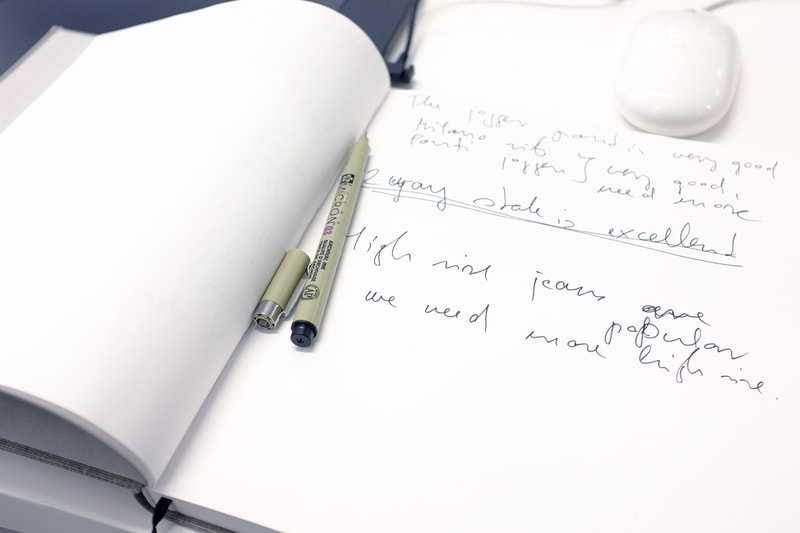 The jogger is very good.
Milano rib } very good,
Ponti jogger } need more
2 way is excellent
High rise jeans are
popular
we need more high rise.
MICRON 03
ARCHIVAL INK